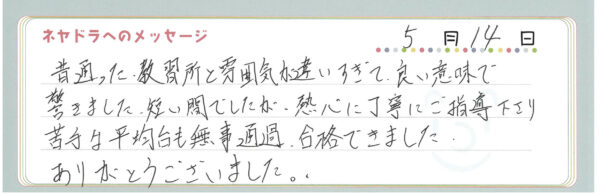 ネヤドラへのメッセージ
5月14日
昔通った、教習所と雰囲気が違いすぎて、良い意味で
驚きました。短い間でしたが、熱心に丁寧にご指導下さり
苦手な平均台も無事通過、合格できました。
ありがとうございました。。